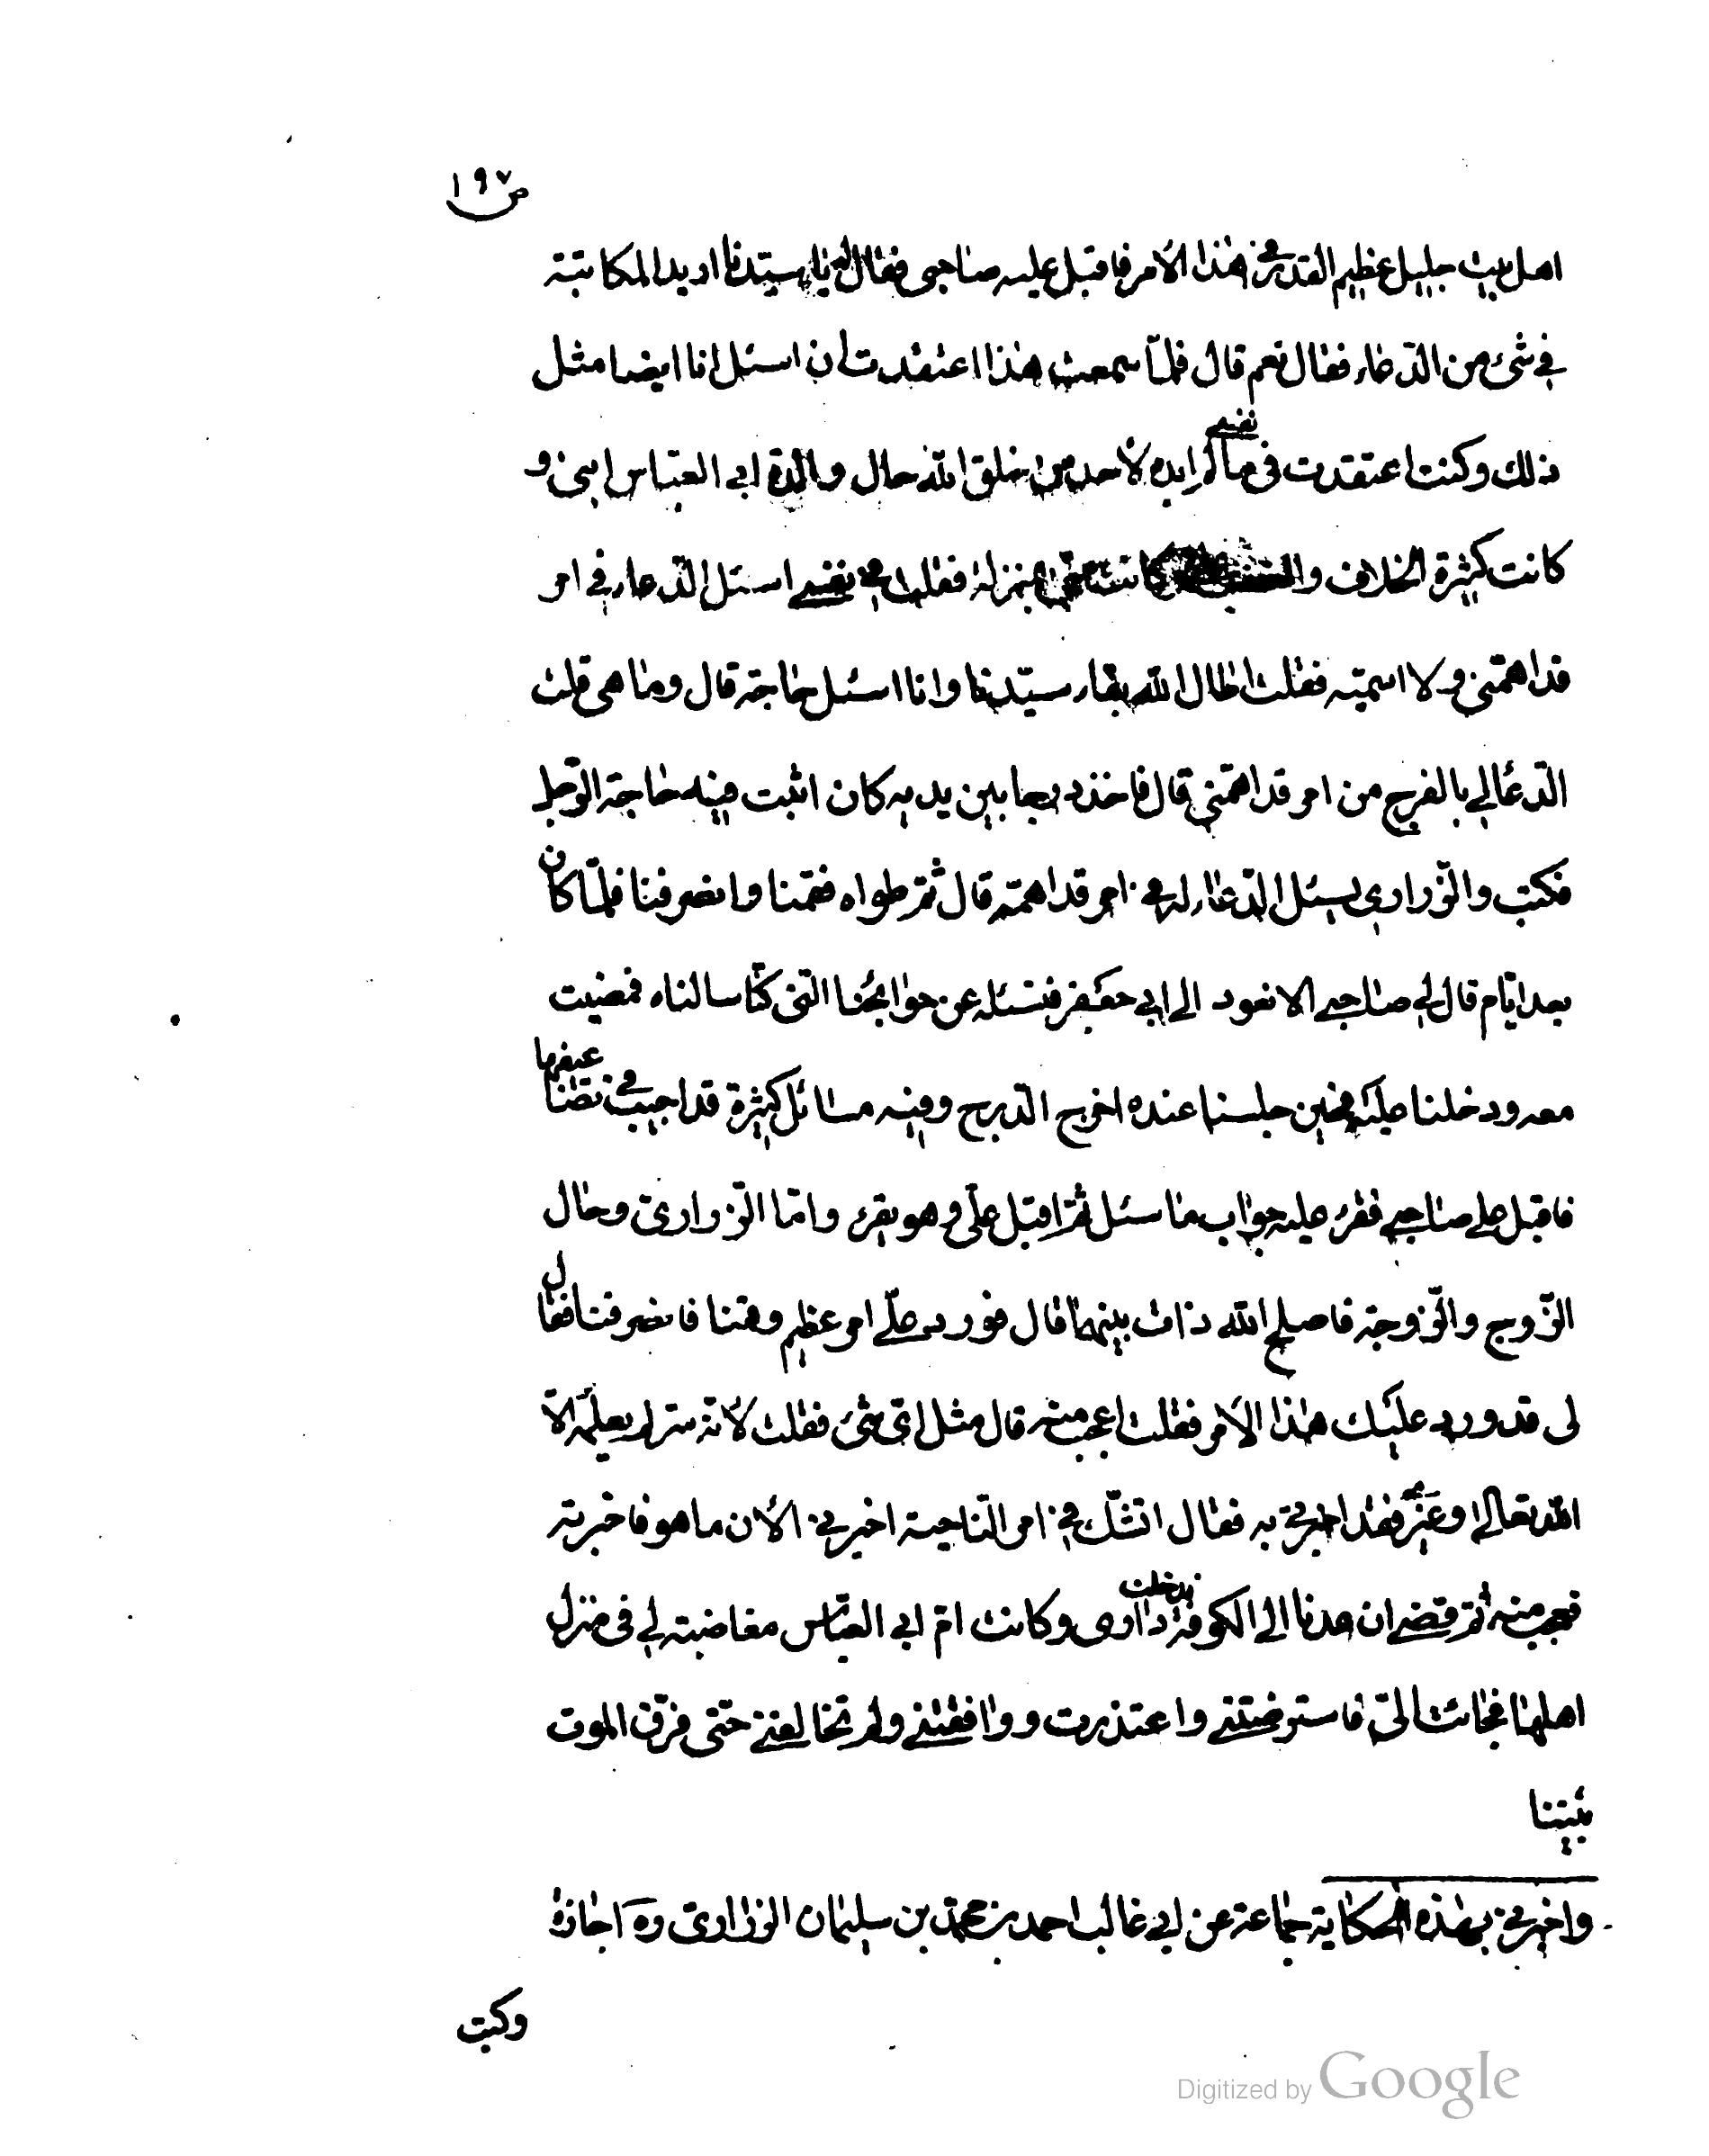 ص ١٩٧
اهل بيت جليل عظيم القدر في هذا الأمر فاقبل عليه صاحبى فقال له يا سيّدنا اريد المكاتبة
في شئ من الدّعاء فقال نعم قال فلمّا سمعت هذا اعتقدت ان اسئل انا ايضا مثل
ذلك وكنت اعتقدت في نفسى ما لم ابده لأحد من خلق الله حال والدة ابي العبّاس ابنى و
كانت كثيرة الخلاف و كانت منّى بمنزلة فقلت في نفسى اسئل الدّعاء في امر
قد اهمّنى ولا اسمّيه فقلت اطال الله بقاء سيّدنا وانا اسئل حاجة قال وما هى قلت
الدّعا لي بالفرج من امر قد اهمّنى قال فاخذ درجا بين يديه كان اثبت فيه حاجة الرّجل
فكتب والزّراري يسئل الدّعاء له في امر قد اهمّه قال ثمّ طواه فقمنا وانصرفنا فلمّا كان
بعد ايّام قال لي صاحبي الا نعود الى ابي جعفر فنسئله عن حوائجنا التى كنّا سالناه فمضيت
معه ودخلنا عليه فحين جلسنا عنده اخرج الدّرج وفيه مسائل كثيرة قد اجيب في تضاعيفها
فاقبل على صاحبي فقرء عليه جواب ما سئل ثمّ اقبل علىّ وهو يقرء وامّا الزّراريّ وحال
الزّوج والزّوجة فاصلح الله ذات بينهما قال فورد علىّ امر عظيم وقمنا فانصرفنا فقال
لى قد ورد عليك هذا الأمر فقلت اعجب منه قال مثل اىّ شئ فقلت لأنّه سرّ لم يعلمه الّا
الله تعالى وغيرى فقد اخبرني به فقال اتشكّ في امر النّاحية اخبرني الأن ما هو فاخبرته
فعجب منه ثمّ قضى ان عدنا الى الكوفة فدخلت دارى وكانت امّ ابي العبّاس مغاضبة لي فى منزل
اهلها فجائت الىّ فاسترضتنى واعتذرت ووافقتنى ولم تخالفنى حتّى فرّق الموت
بيننا
واخبرني بهذه الحكاية جماعة عن ابي غالب احمد بن محمّد بن سليمان الزّراريّ ره اجازة
وكتب
Digitized by Google